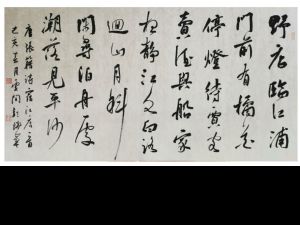 野店臨江浦
門前有橘花
停燈待賈客
賣酒與船家
夜靜江水白路
迴山月斜
閑尋泊舟處
潮落見平沙
唐張籍詩宿江店一首
己亥春月雲間